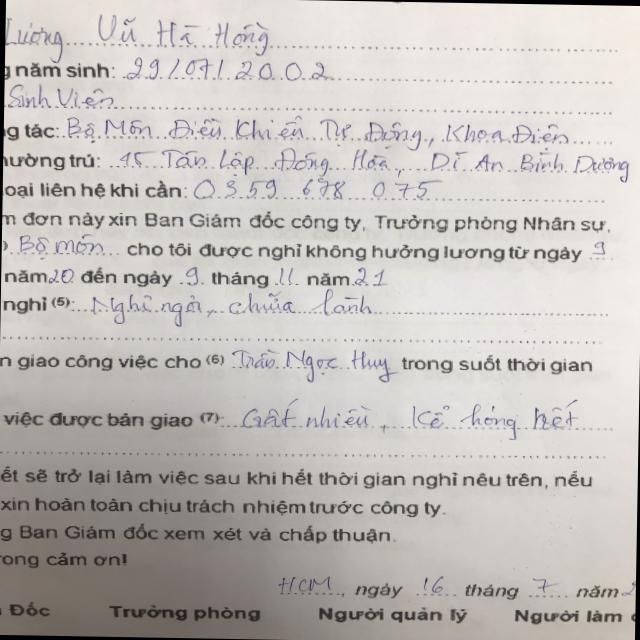 Lương Vũ Hà Hồng
g năm sinh: 29/07/2002
Sinh Viên
g tác: Bộ Môn Điều Khiển Tự Động, Khoa Điện
hường trú: 15 Tân Lập Đông Hòa, Dĩ An Bình Dương
oại liên hệ khi cần: 0359 678 075
m đơn này xin Ban Giám đốc công ty, Trưởng phòng Nhân sự,
Bộ môn cho tôi được nghỉ không hưởng lương từ ngày 9
năm 20 đến ngày 9 tháng 11 năm 21
nghỉ (5): Nghỉ ngơi, chữa lành
n giao công việc cho (6) Trần Ngọc Huy trong suốt thời gian
việc được bàn giao (7): nhiều, Kể hông hết
ết sẽ trở lại làm việc sau khi hết thời gian nghỉ nêu trên, nếu
xin hoàn toàn chịu trách nhiệm trước công ty.
g Ban Giám đốc xem xét và chấp thuận.
rong cảm ơn!
HCM, ngày 16 tháng 7 năm 2
Đốc Trưởng phòng Người quản lý Người làm